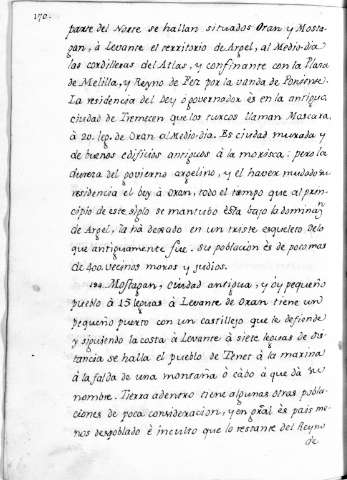 170.
parte del Norte se hallan situados Oran y Mosta-
gan, à Levante el territorio de Argel, al Medio-dia
las cordilleras del Atlas, y confinante con la Plaza
de Melilla, y Reyno de Fez por la vanda de Poniente.
La residencia del Bey ò governador és en la antigua
ciudad de Tremecen que los turcos llaman Mascara,
à 20. leg.s de Oran al Medio-dia. Es ciudad murada y
de buenos edificios antiguos à la morisca: pero la
dureza del govierno argelino, y el haver mudado su
residencia el bey à Oran, todo el tempo que al prin-
cipio de este siglo se mantubo ésta bajo la dominac.n
de Argel, la hà dexado en un triste esqueleto delo
que antiguamente fue. Su poblacion és de poco mas
de 400. vecinos moros y judios.
194. Mostagan, ciudad antigua, y oy pequeño
pueblo à 15 leguas à Levante de Oran tiene un
pequeño puerto con un castillejo que le defiende
y siguiendo la costa à Levante à siete leguas de dis-
tancia se halla el pueblo de Tenez à la marina
à la falda de una montaña ò cabo à que dà su
nombre. Tierra adentro tiene algunas otras pobla-
ciones de poca consideracion, y en gral és pais me-
nos despoblado è inculto que lo restante del Reyno
de